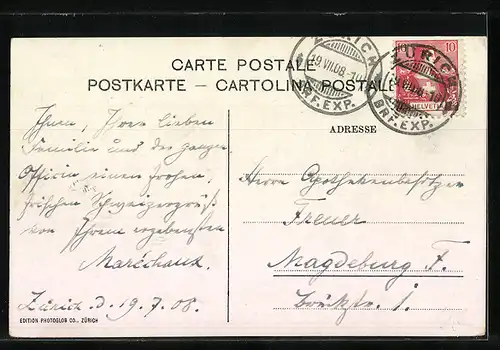 CARTE POSTALE
POSTKARTE – CARTOLINA POSTALE
ZÜRICH
19.VII.08.-10
BRF. EXP.
ZÜRICH
19.VII.08.-10
BRF. EXP.
10 10
HELVETIA
ADRESSE
Ihnen, Ihrer lieben
Familie und der ganzen
Officin einen frohen,
frischen Schweizergruß
von Ihrem ergebensten
Maréchaux.
Zürich d. 19.7.08.
Herrn Apothekenbesitzer
Freuer
Magdeburg F.
1.
EDITION PHOTOGLOB CO., ZÜRICH